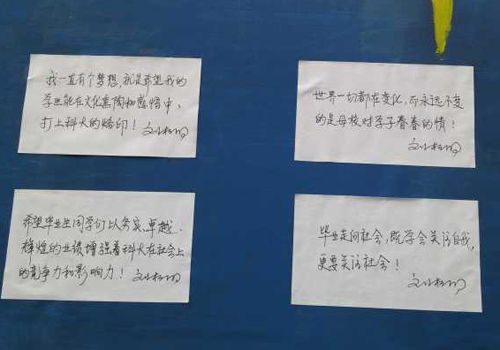 我一直有个梦想,就是希望我的
学生能在文化熏陶和感悟中,
打上科大的烙印!
世界一切都在变化,而永远不变
的是母校对学子眷眷的情!
希望毕业生同学们以务实、卓越、
辉煌的业绩增强着科大在社会上
的竞争力和影响力!
毕业走向社会,既学会关注自我,
更要关注社会!